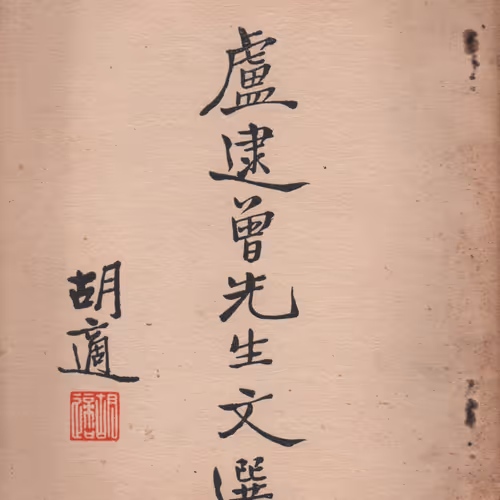 盧逮曾先生文選
胡適
胡適